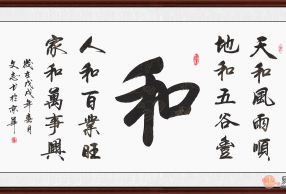 天和風雨順
地和五谷豐
和
人和百業旺
家和萬事興
歲在戊戌年
文志書於京華